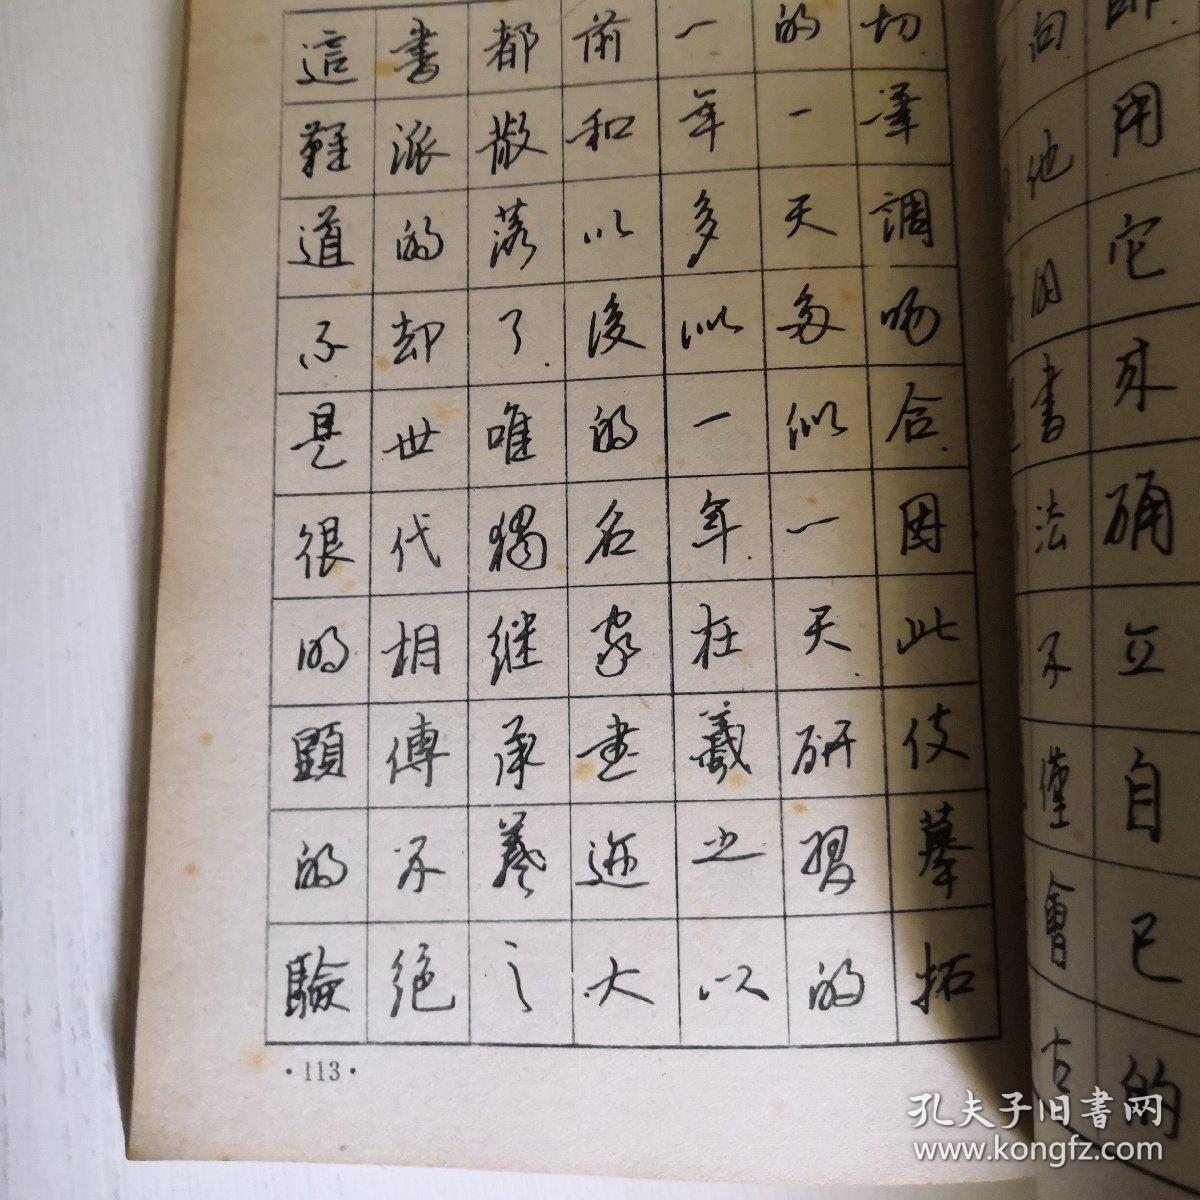 用它来确立自己的
向他的書法不僅會古
切筆調吻合因此伎摹拓
的一天天多似一天研習的
一年年多似一年在羲之以
前和以後的名家書迹大
都散落了唯獨继承羲之
書派的却世代相傳不絕
這難道不是很明顯的驗
·113·
孔夫子旧書网
www.kongfz.com